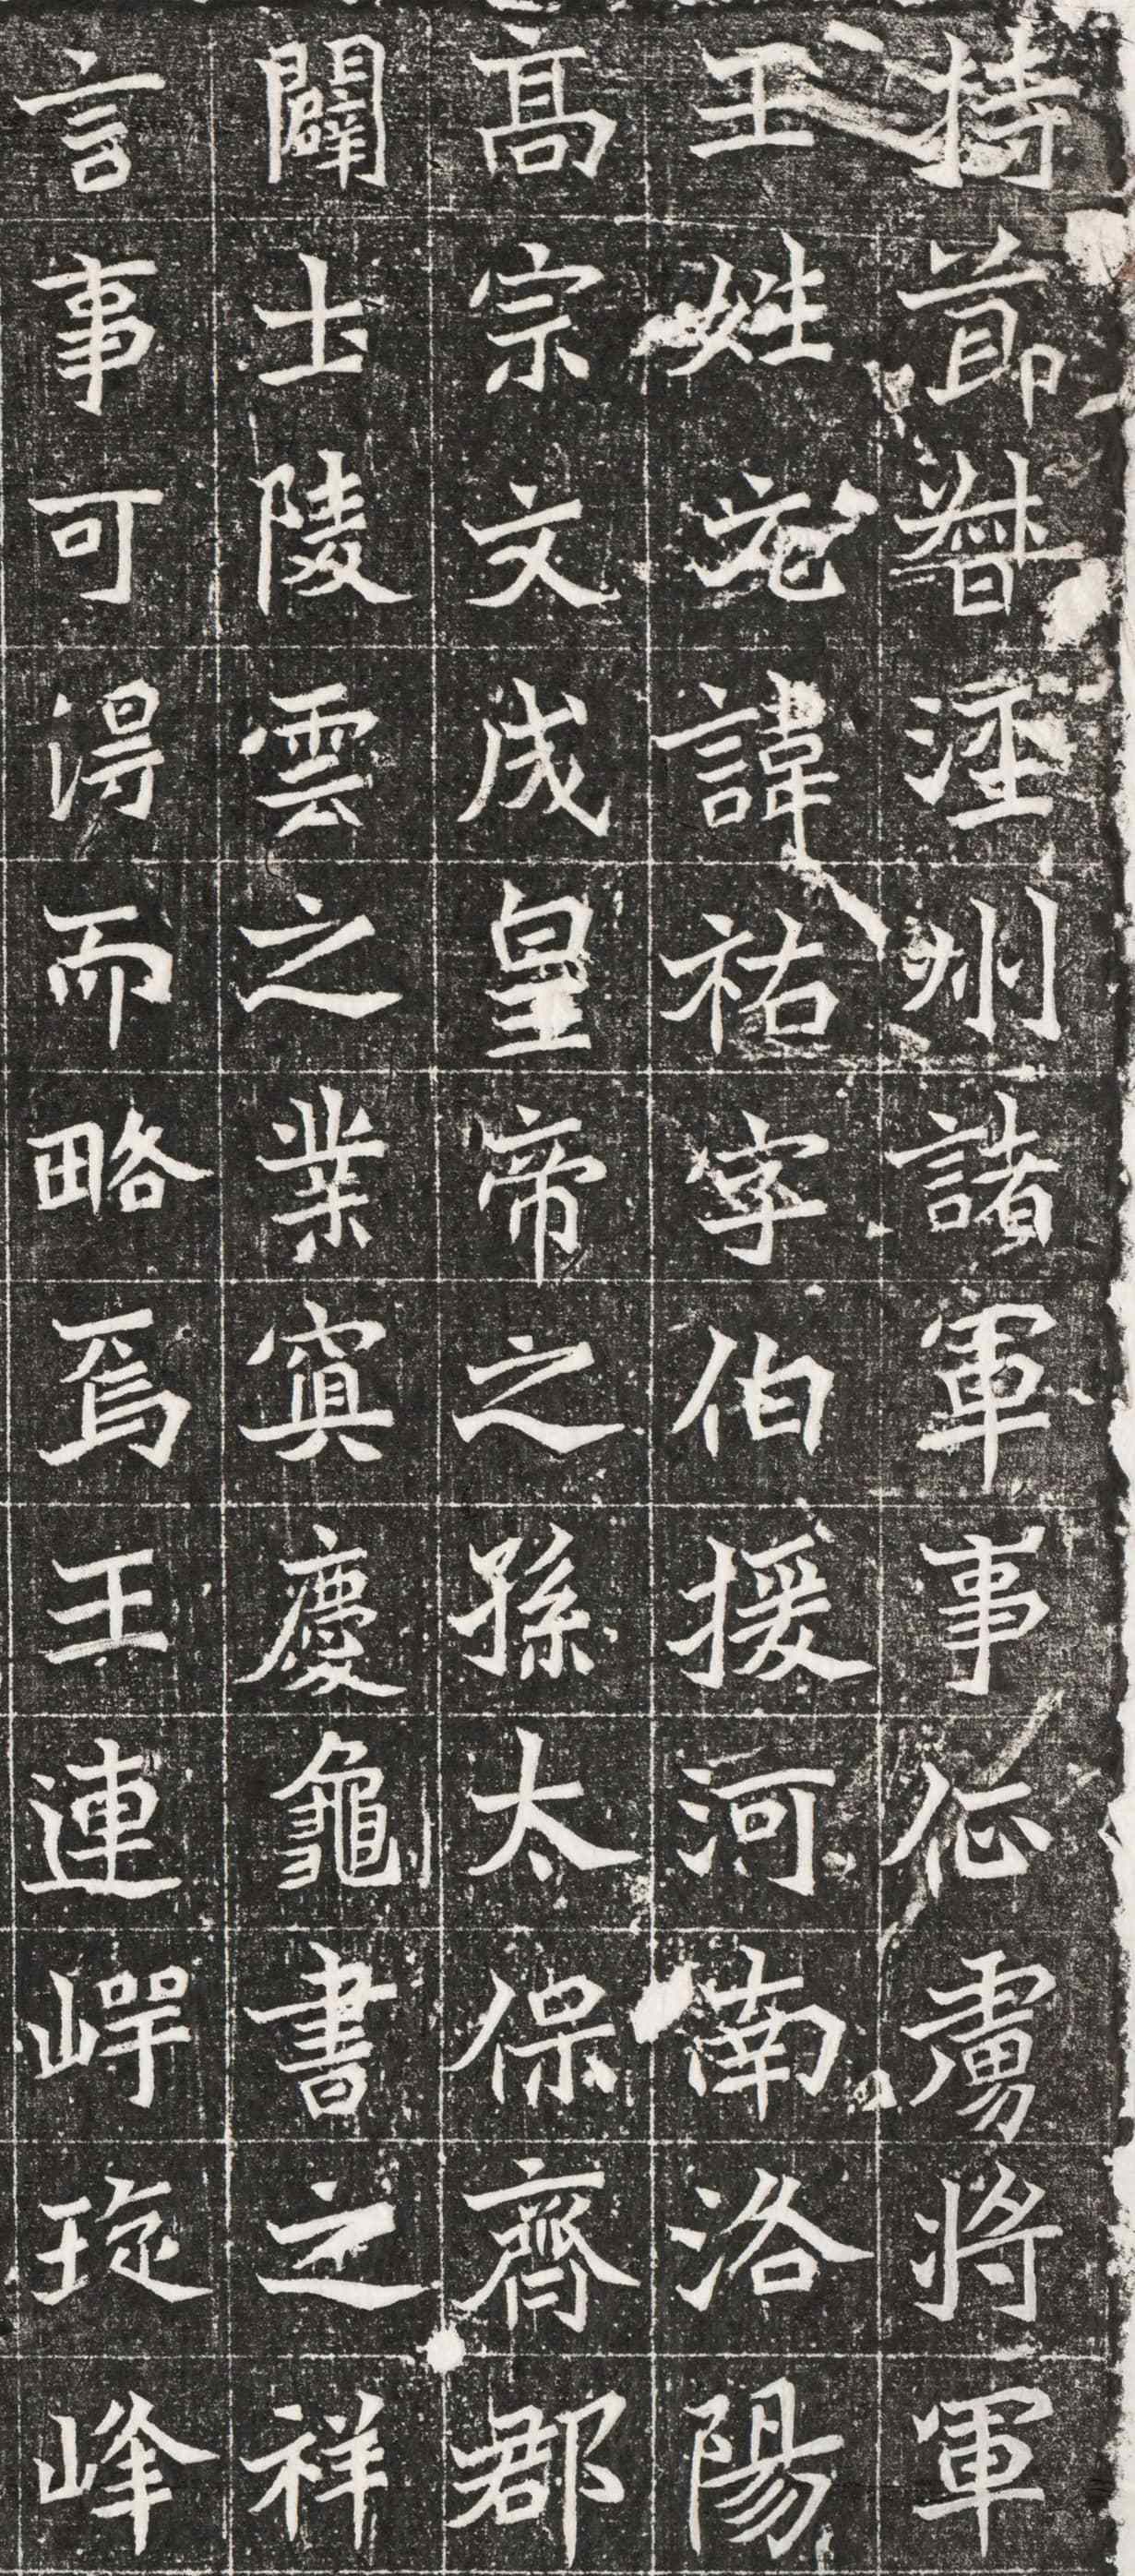 持節督涇州諸軍事征虜將軍
王姓元諱祐字伯援河南洛陽
高宗文成皇帝之孫太保齊郡
闢土陵雲之業寘慶龜書之祥
言事可得而略焉王連崿琁峰